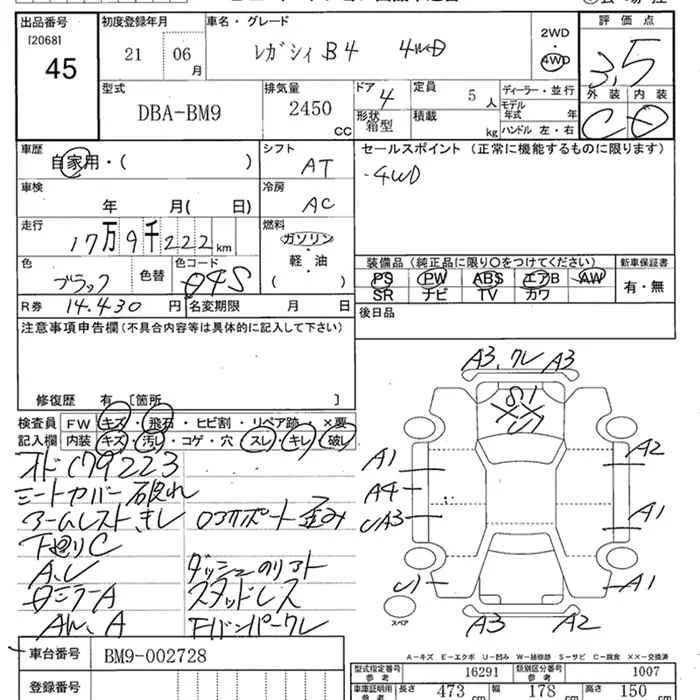 出品番号 初度登録年月 車名・グレード 評価点
[2068]
45
21 06月
レガシィ B4 4WD
2WD
4WD
3,5
型式 排気量 ドア 定員 ディーラー・並行 外装 内装
DBA-BM9 2450 CC 4 5人 モデル年式 年
形状 箱型 積載 kg ハンドル 左・右
C D
車歴 シフト セールスポイント(正常に機能するものに限ります)
自家用・( ) AT ・4WD
車検 冷房
年 月( 日) AC
走行 燃料
17万9千222km ガソリン・軽・油( )
色 色替 色コード
ブラック 04S
装備品(純正品に限り○をつけてください) 新車保証書
PS PW ABS エアB AW 有・無
SR ナビ TV カワ
R券 14.430円 名変期限 月 日
後日品
注意事項申告欄(不具合内容等は具体的に記入して下さい)
修復歴 有 [箇所 ]
検査員記入欄
FW キズ・飛石・ヒビ割・リペア跡 ×要
内装 キズ・汚レ・コゲ・穴・スレ・キレ・破レ
シートカバー破れ
アームレスト、キレ
下廻りC
ダッシュのリフト
スタッドレス
AW、A
A3,ワレ A3
A1 A2
A4
UA3 A1
U1 A1
スペア
A3 A2
A-キズ E-エクボ U-凹み W-補修跡 S-サビ C-腐食 XX-交換済
車台番号 BM9-002728
登録番号
型式指定番号 参考 16291 類別区分番号 参考 1007
車庫証明用 参考 長さ 473cm 幅 178cm 高さ 150cm